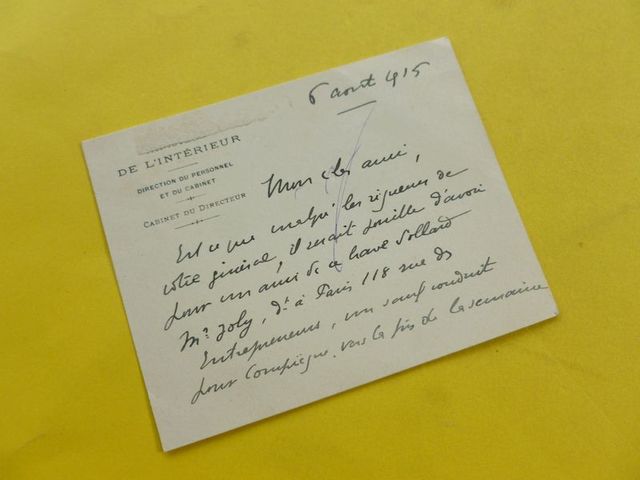 6 août 1915
DE L'INTÉRIEUR
DIRECTION DU PERSONNEL
ET DU CABINET
CABINET DU DIRECTEUR
Mon cher ami,
Est ce que malgré les rigueurs de
votre général, il serait possible d'avoir
pour un ami de ce brave
Mr Joly, dt à Paris 118 rue des
Entrepreneurs, un sauf conduit
pour Compiègne vers la fin de la semaine